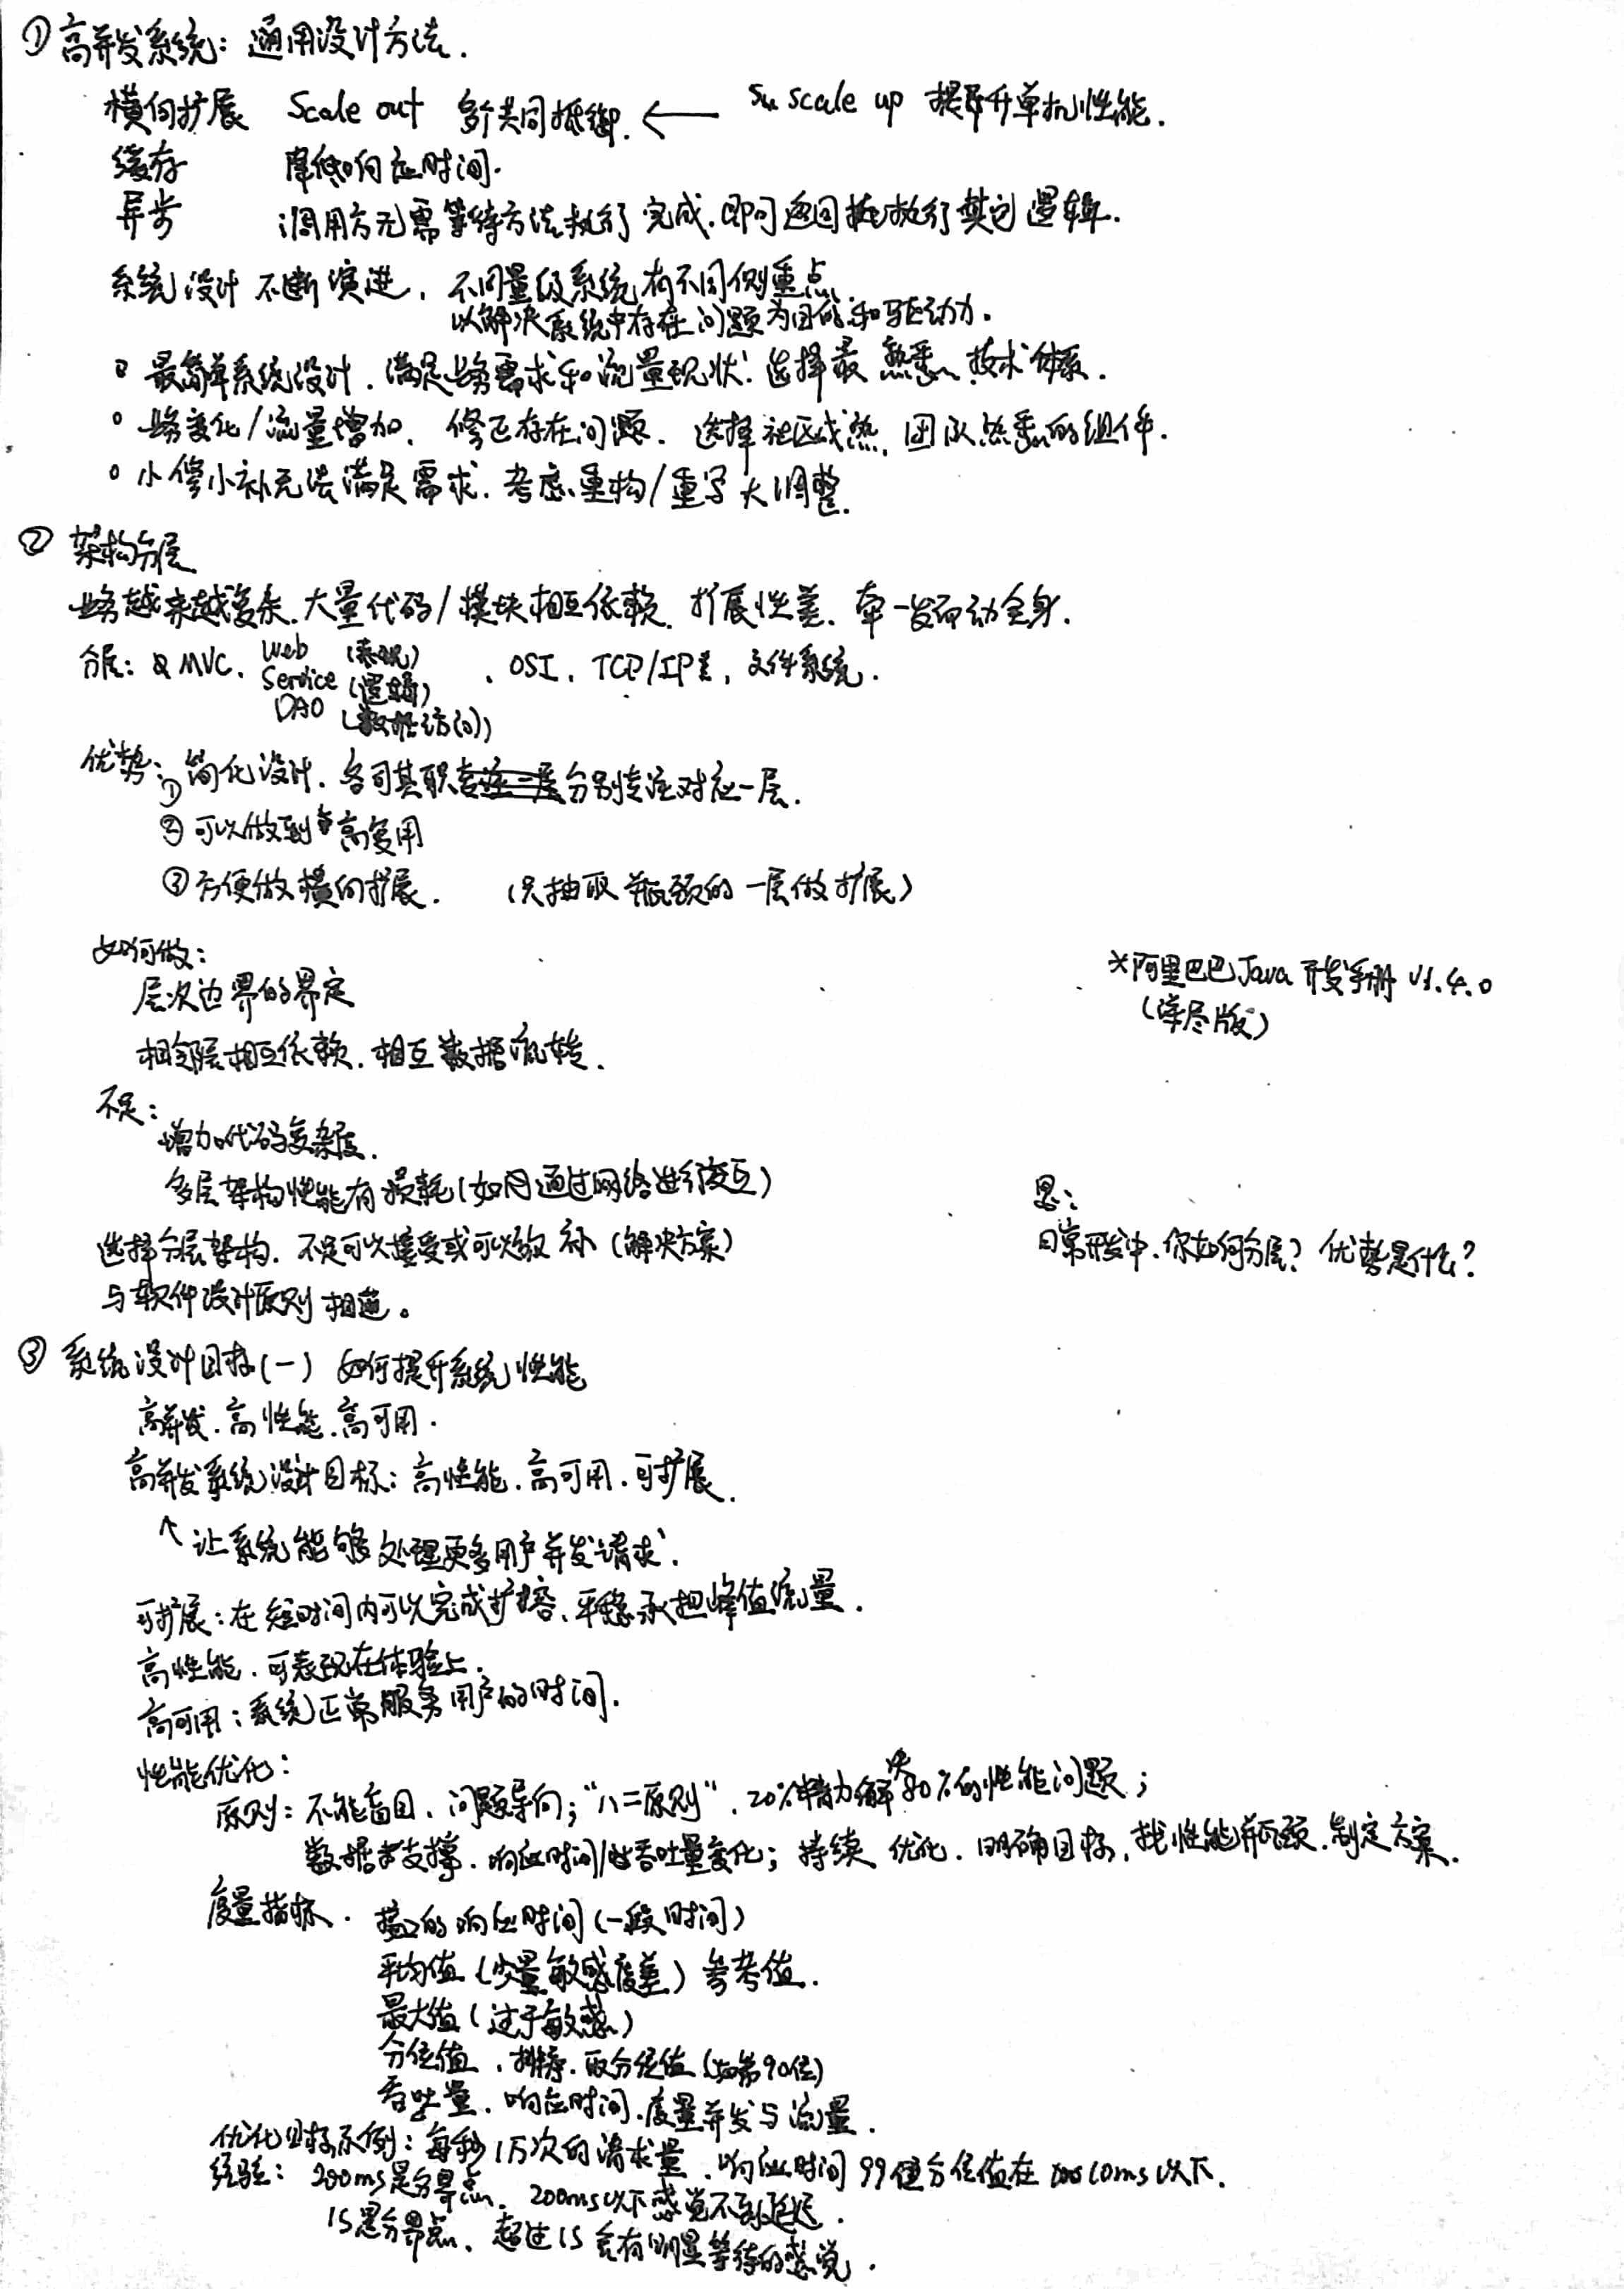 ① 高并发系统：通用设计方法.
横向扩展 Scale out 多个共同抵御. ← scale up 提升单机性能.
缓存 降低响应时间.
异步 调用方无需等待方法执行完成.即可返回执行其它逻辑.
系统设计不断演进, 不同量级系统有不同侧重点.
以解决系统中存在问题为目的和驱动力.
。最简单系统设计. 满足业务需求和流量现状. 选择最熟悉 技术体系.
。业务变化/流量增加, 修正存在问题. 选择社区成熟, 团队熟悉的组件.
。小修小补无法满足需求. 考虑重构/重写大调整.
② 架构分层
业务越来越复杂.大量代码/模块相互依赖. 扩展性差. 牵一发而动全身.
分层: MVC. Web (表现) . OSI, TCP/IP, 文件系统.
Service (逻辑)
DAO (数据访问)
优势: ① 简化设计. 各司其职分别专注对应一层.
② 可以做到高复用
③ 方便做横向扩展. (只抽取瓶颈的一层做扩展)
如何做:
层次边界的界定
※阿里巴巴Java开发手册 v1.4.0
(详尽版)
相邻层相互依赖. 相互数据流转.
不足:
增加代码复杂度.
多层架构性能有损耗(如因通过网络进行交互)
思:
选择分层架构. 不足可以接受或可以弥补 (解决方案)
日常开发中. 你如何分层? 优势是什么?
与软件设计原则相通。
③ 系统设计目标(一) 如何提升系统性能
高并发. 高性能. 高可用.
高并发系统设计目标: 高性能. 高可用. 可扩展.
↑ 让系统能够处理更多用户并发请求.
可扩展: 在短时间内可以完成扩容, 平稳承担峰值流量.
高性能. 可表现在体验上.
高可用: 系统正常服务用户的时间.
性能优化:
原则: 不能盲目. 问题导向; "八二原则". 20%精力解决80%的性能问题;
数据支撑. 响应时间/吞吐量变化; 持续优化. 明确目标, 找性能瓶颈. 制定方案.
度量指标. 接口的响应时间 (一段时间)
平均值 (少量敏感度差) 参考值.
最大值 (过于敏感)
分位值. 排序. 取分位值 (如第90位)
吞吐量. 响应时间. 度量并发与流量.
优化目标示例: 每秒1万次的请求量. 响应时间99位分位值在10ms以下.
经验: 200ms是分界点. 200ms以下感觉不到延迟.
1S是分界点. 超过1S会有明显等待的感觉.